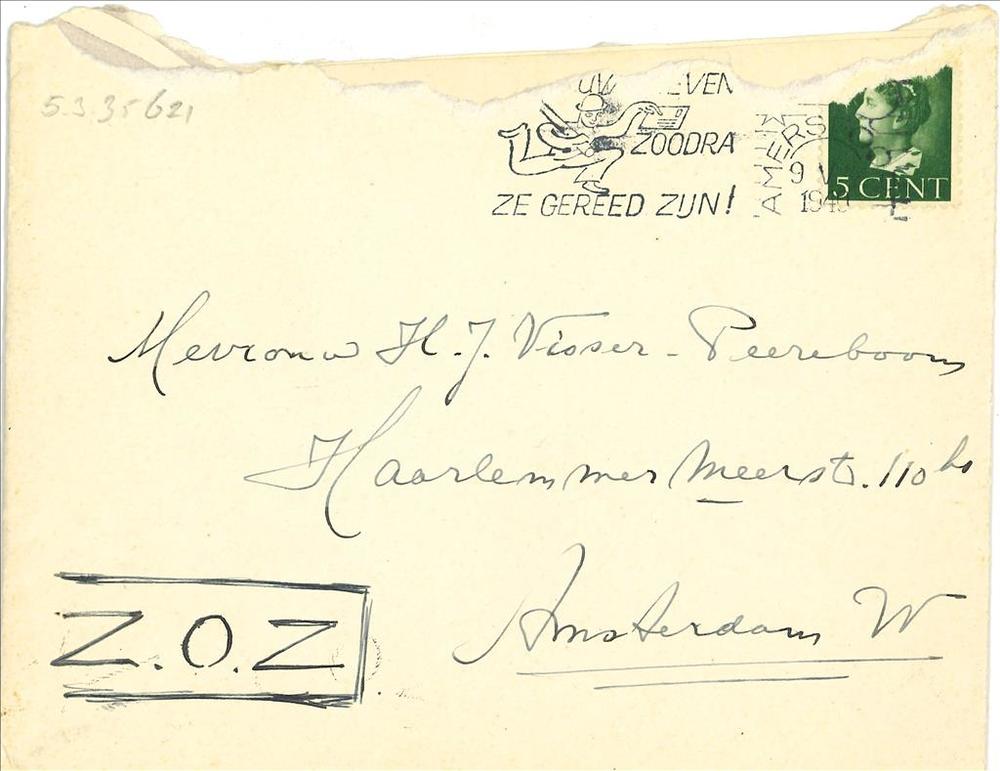 5.3.35621
UW EVEN
ZOODRA
ZE GEREED ZIJN!
AMERS
9 V
194
5 CENT
Mevrouw H. J. Visser - Peereboom
Haarlemmer Meerst. 110 hs
Amsterdam W
Z.O.Z